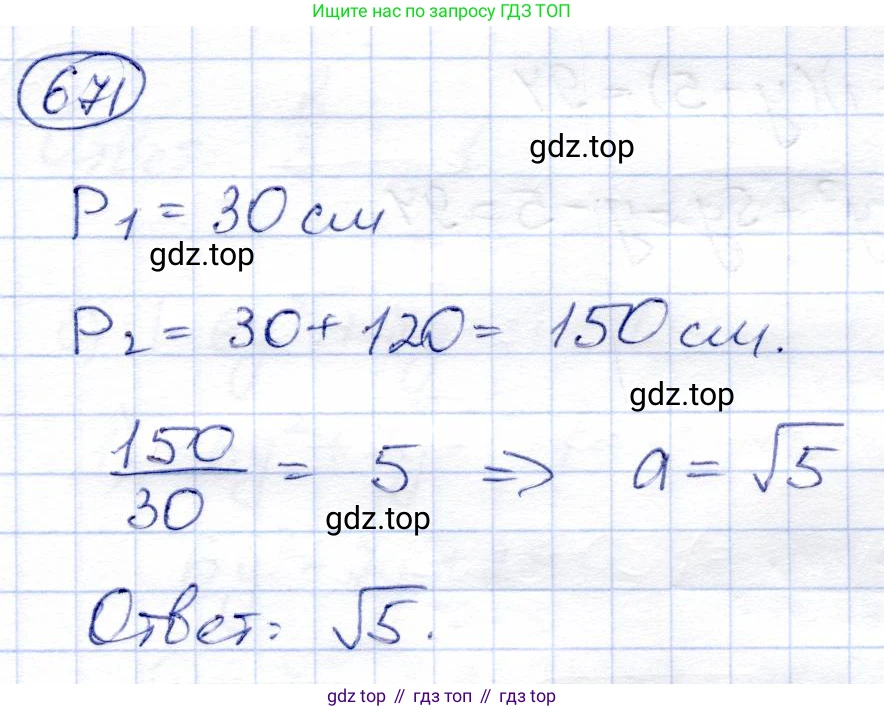 Ищите нас по запросу ГДЗ ТОП
671
gdz.top
P₁ = 30 см
gdz.top
P₂ = 30 + 120 = 150 см.
gdz.top
150/30 = 5 => a = √5
gdz.top
Ответ: √5.
gdz top // гдз топ // gdz top